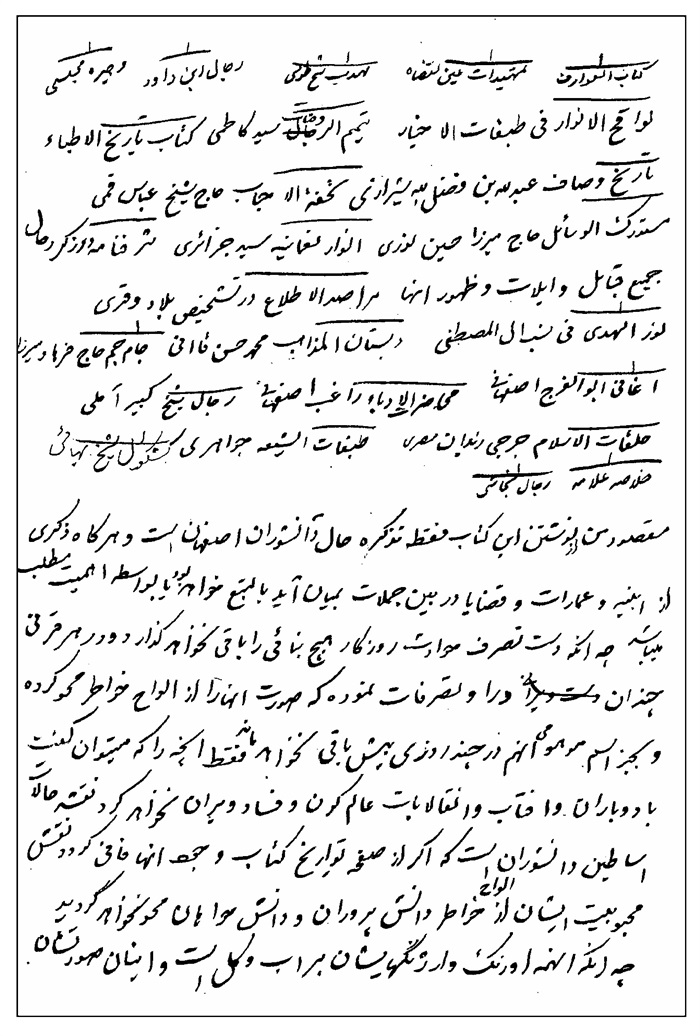 کتاب العوارف تمهیدات عین القضاه تهذیب شیخ طوسی رجال ابن داود وجیزه مجلسی
لواقح الانوار فی طبقات الاخیار تتمیم الرجال سید کاظمی کتاب تاریخ الاطباء
تاریخ وصاف عبدالله بن فضل الله شیرازی تحفة الاحباب حاج شیخ عباس قمی
مستدرک الوسائل حاج میرزا حسین نوری انوار نعمانیه سید جزائری شرفنامه در ذکر حال
جمیع قبایل و ایلات و ظهور آنها مراصد الاطلاع در تشخیص بلاد و قری
نور الهدی فی نسب آل المصطفی دبستان المذاهب محمد حسن فانی جام جم حاج فرهاد میرزا
اغانی ابوالفرج اصفهانی محاضر الادباء راغب اصفهانی رجال شیخ کبیر آملی
طبقات الاسلام جرجی زیدان مصری طبقات الشیعه جواهری کشکول شیخ بهائی
خلاصه علامه رجال نجاشی
مقصود من از نوشتن این کتاب فقط تذکره حال دانشوران اصفهان است و هرکاه ذکری
از ابنیه و عمارات و قضایا در بین جملات بمیان آید بالتبع خواهد بود یا بواسطه اهمیت مطلب
میباشد چه آنکه دست تصرف حوادث روزکار هیچ بنائی را باقی نخواهد گذارد و در هر قرنی
چندان در او تصرفات نموده که صورت آنها را از الواح خواطر محو کرده
و بجز اسم موهومی آنهم در چند روزی بیش باقی نخواهد ماند فقط آنچه را که میتوان گفت
باد و باران و آفتاب و انقلابات عالم کون و فساد ویران نخواهد کرد نقشه حالات
اساطین دانشوران است که اگر از صفحه تواریخ کتاب و جمعه آنها فانی گردد نقش
محبوبیت ایشان از الواح خواطر دانش پروران و دانش خواهان محو نخواهد گردید
چه آنکه آنهمه اورنک و ارژنگهایشان بر آب و گل است و اینان صورتشان